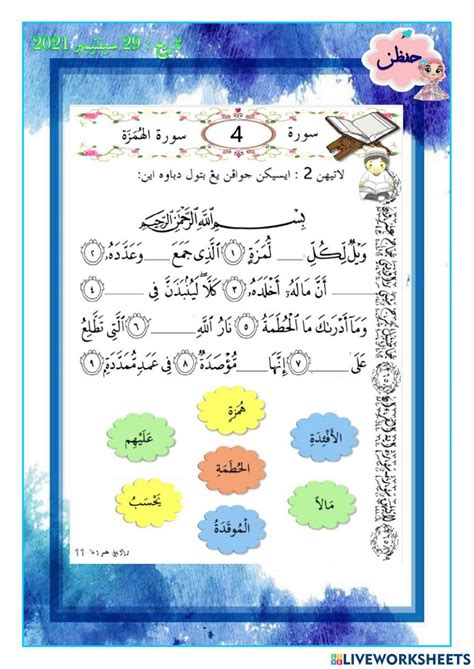 تاريخ : 29 سيڤتيمبر 2021
حفظن
سورة 4 سورة الهُمَزَة
لاتيهن 2 : ايسيكن جواڤن يڠ بتول دباوه اين:
بِسْمِ اللَّهِ الرَّحْمَٰنِ الرَّحِيمِ
وَيْلٌ لِّكُلِّ ____ لُّمَزَةٍ ۝١ الَّذِي جَمَعَ ____ وَعَدَّدَهُۥ ۝٢
____ أَنَّ مَالَهُۥٓ أَخْلَدَهُۥ ۝٣ كَلَّا ۖ لَيُنۢبَذَنَّ فِى ____ ۝٤
وَمَآ أَدْرَىٰكَ مَا الْحُطَمَةُ ۝٥ نَارُ اللَّهِ ____ ۝٦ الَّتِى تَطَّلِعُ
عَلَى ____ ۝٧ إِنَّهَا ____ مُّؤْصَدَةٌ ۝٨ فِى عَمَدٍ مُّمَدَّدَةٍۭ ۝٩
هُمَزَةٍ
عَلَيْهِم
الأَفْئِدَةِ
الحُطَمَةِ
يَحْسَبُ
مَالاً
الْمُوقَدَةُ
11
LIVEWORKSHEETS